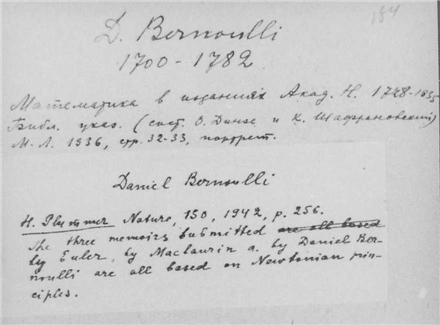 184
D. Bernoulli
1700 - 1782
Математика в изданиях Акад. Н. 1728-1935
Библ. указ. (сост. О. Динзе и К. Шафрановский)
М. Л. 1936, стр. 32-33, портрет.
Daniel Bernoulli
H. Plummer Nature, 150, 1942, p. 256.
The three memoirs submitted are all based
by Euler, by Maclaurin a. by Daniel Ber-
noulli are all based on Newtonian prin-
ciples.